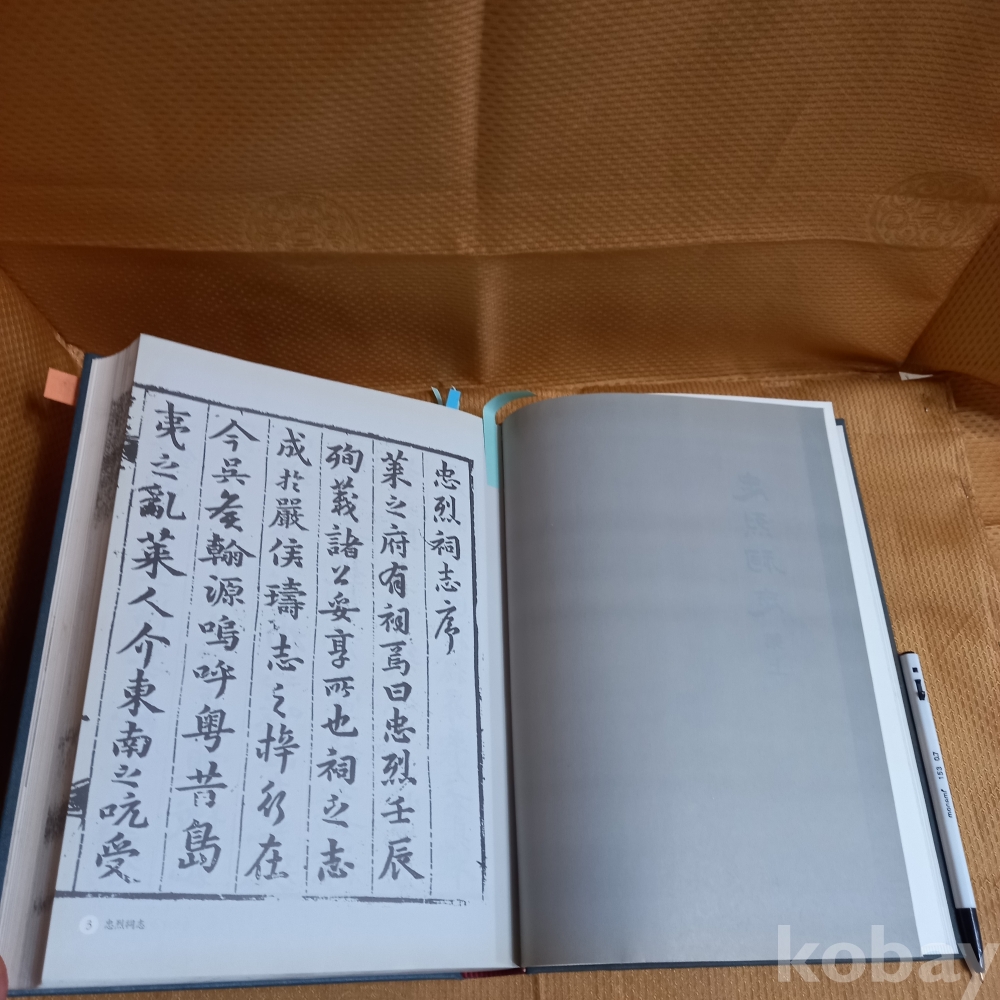 忠烈祠志序
萊之府有祠焉曰忠烈壬辰
殉義諸公妥享所也祠之志
成於嚴侯璹志之梓行在
今吳侯翰源嗚呼粤昔島
夷之亂萊人介東南之吭受
3 忠烈祠志
monami 153 0.7
kobay